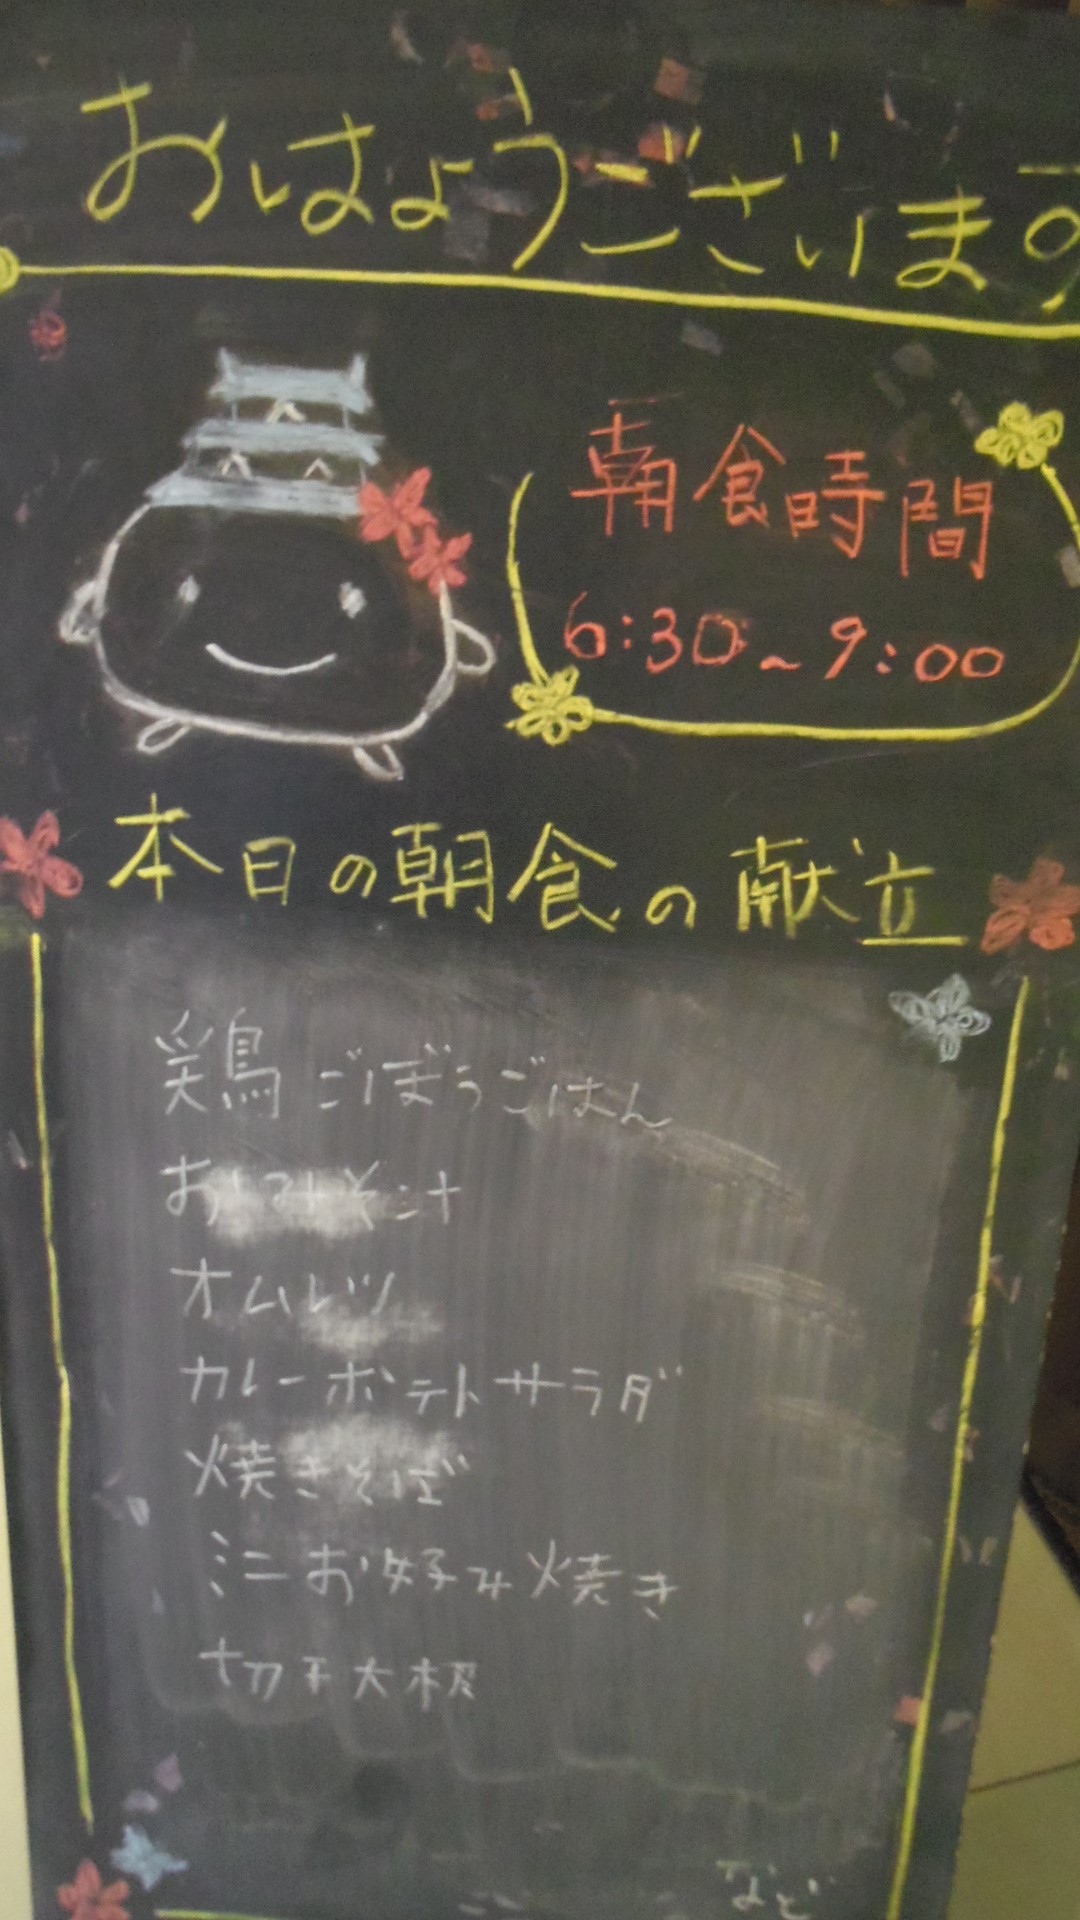 おはようございます
朝食時間
6:30~9:00
本日の朝食の献立
鶏ごぼうごはん
おみそ汁
オムレツ
カレーポテトサラダ
焼きそば
ミニお好み焼き
切干大根
など